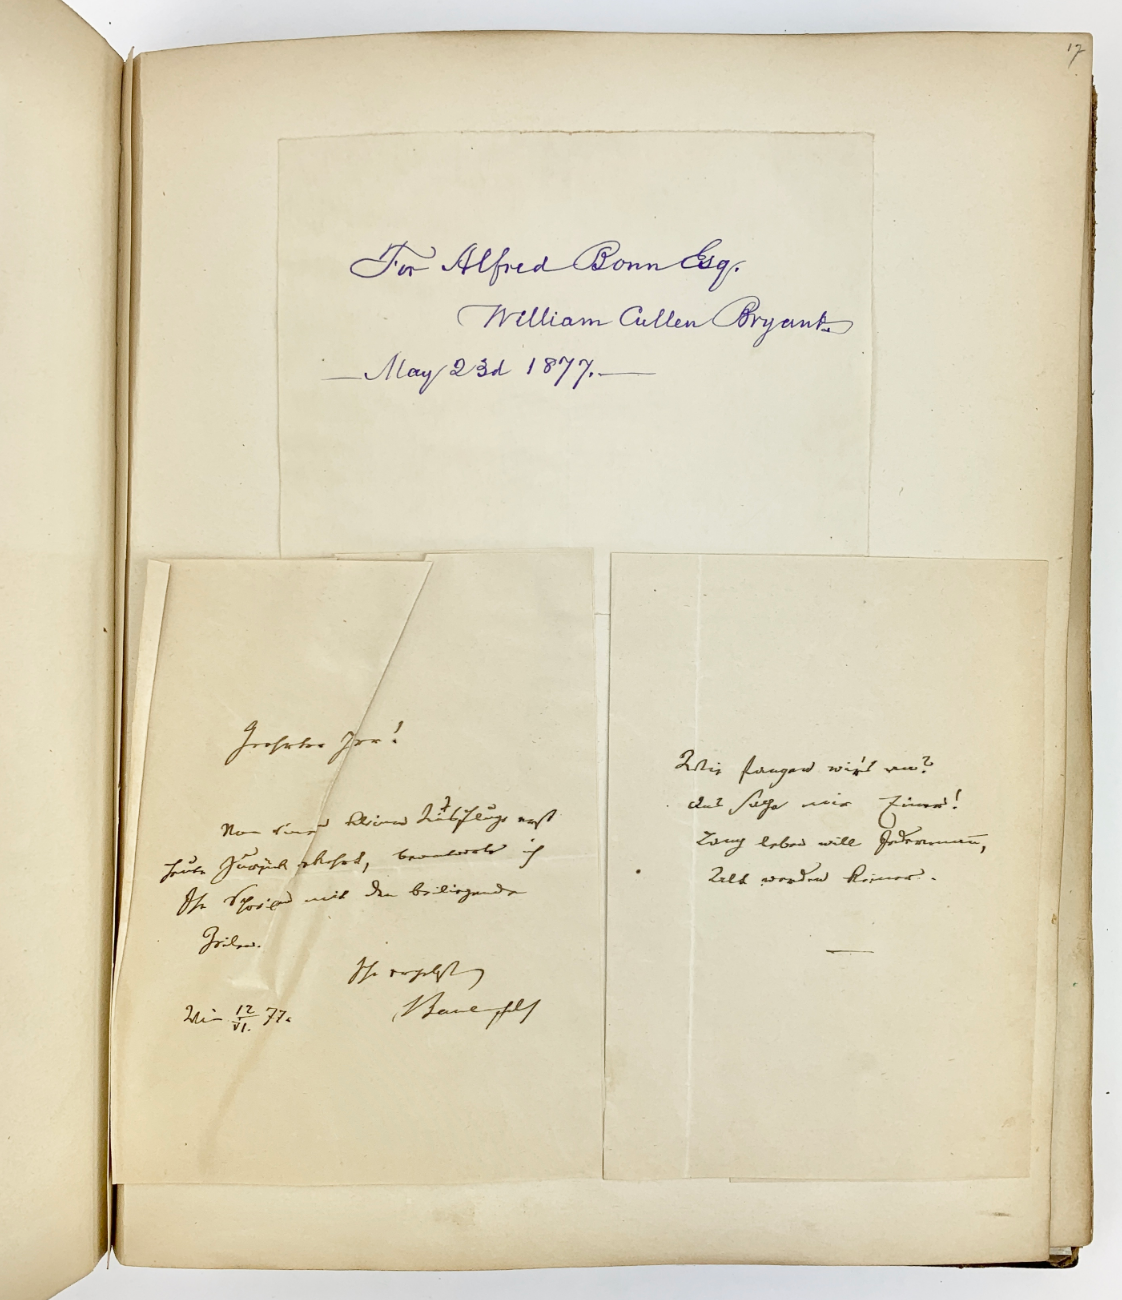 17
For Alfred Bonn Esq.
William Cullen Bryant.
— May 23d 1877. —
Geehrter Herr!
Von einem kleinen Ausfluge erst
heute zurückgekehrt, beantworte ich
Ihr Schreiben mit den beiliegenden
Zeilen.
Ihr ergebenster
Wien 12/VI. 77. Bauernfeld
Wie fangen wir's an?
das sage mir Einer!
Lang leben will Jedermann,
Alt werden keiner.